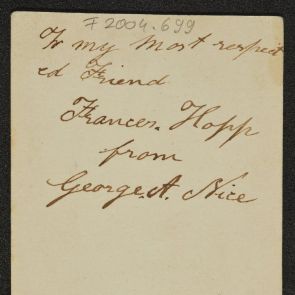 F 2004.699
To my Most respect
ed Friend
Frances. Hopp
from
George. A. Nice